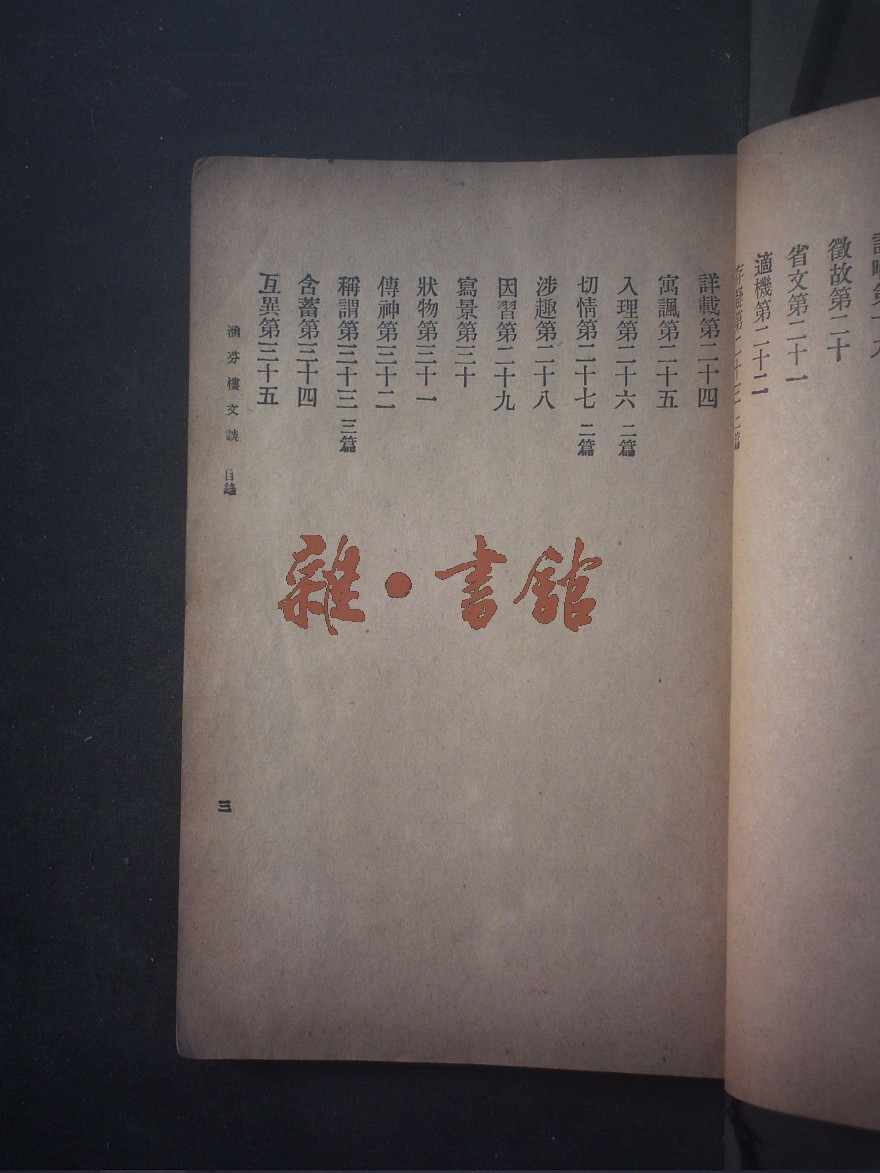 徵故第二十
省文第二十一
適機第二十二
詳載第二十四
寓諷第二十五
入理第二十六 二篇
切情第二十七 二篇
涉趣第二十八
因習第二十九
寫景第三十
狀物第三十一
傳神第三十二
稱謂第三十三 三篇
含蓄第三十四
互異第三十五
涵芬樓文談 目錄
三
雜·書館